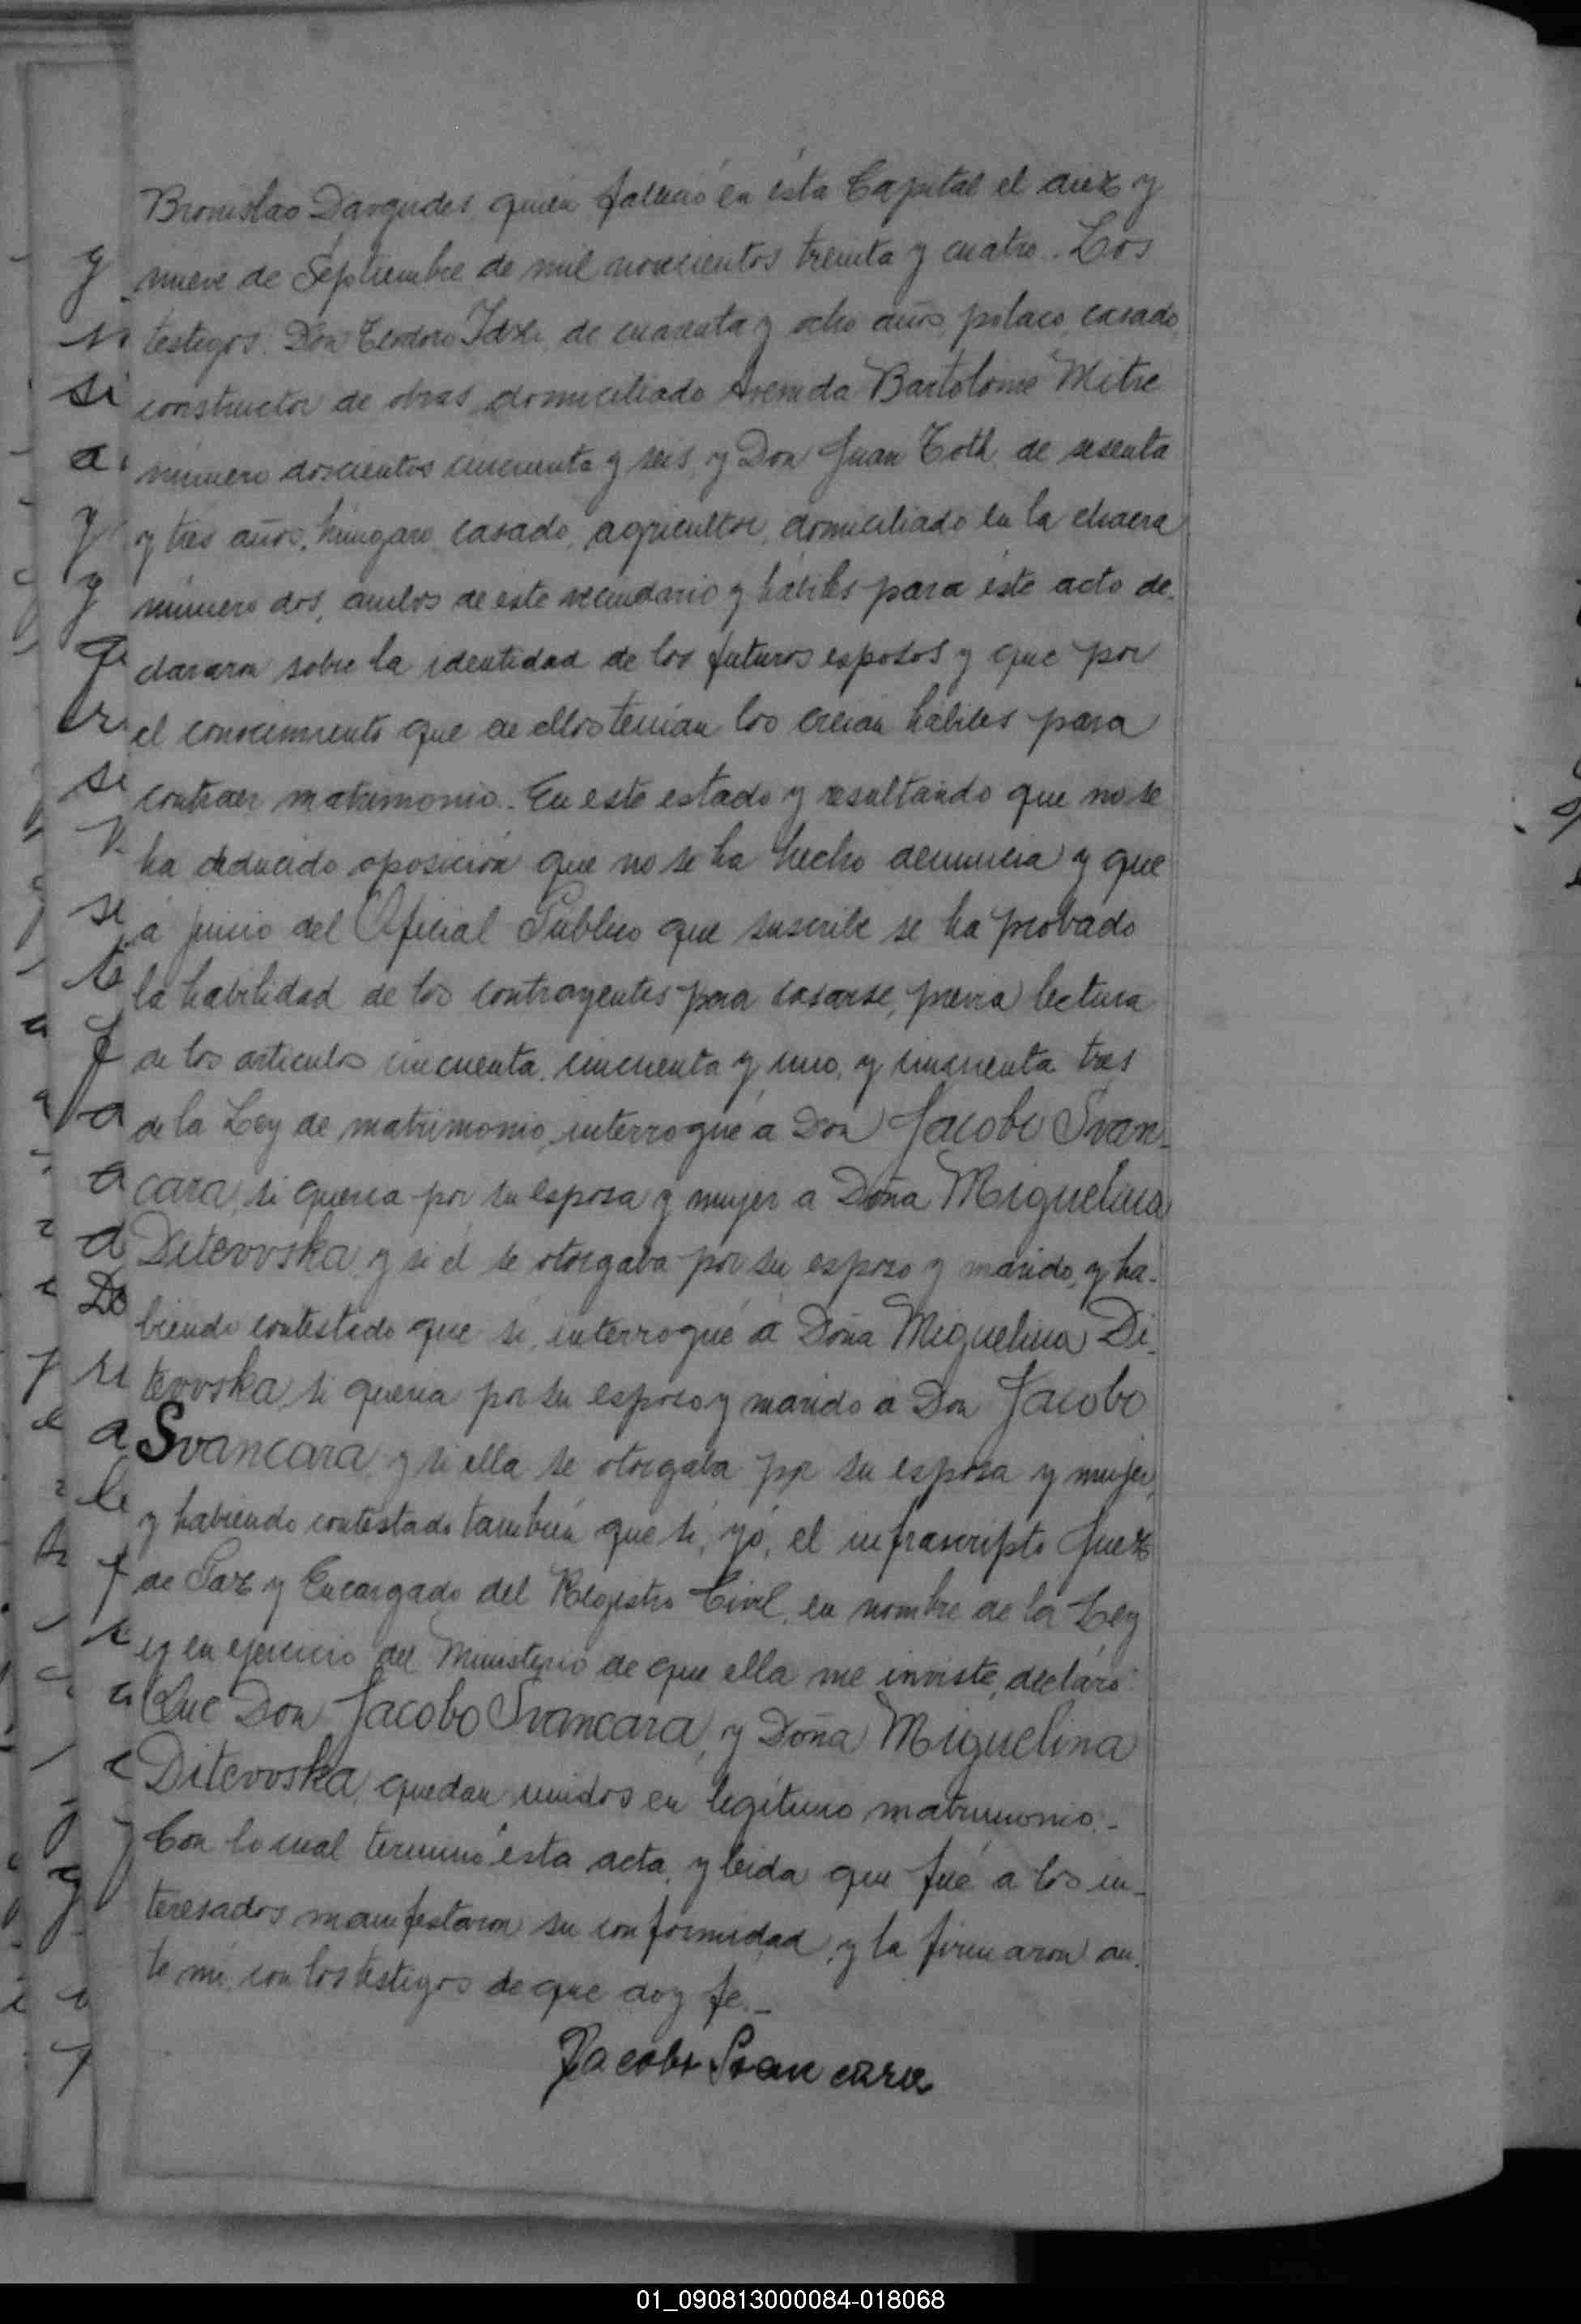 Bronislao Dargudes quien falleció en ésta Capital el diez y
nueve de Septiembre de mil novecientos treinta y cuatro. Los
testigos: Don Teodoro Idzi, de cuarenta y ocho años, polaco, casado,
constructor de obras, domiciliado Avenida Bartolomé Mitre
número doscientos cincuenta y seis, y Don Juan Toth, de sesenta
y tres años, húngaro, casado, agricultor, domiciliado en la chacra
número dos, ambos de este vecindario y hábiles para éste acto de-
clararon sobre la identidad de los futuros esposos y que por
el conocimiento que de ellos tenían los creían hábiles para
contraer matrimonio. En este estado y resultando que no se
ha deducido oposición que no se ha hecho denuncia y que
á juicio del Oficial Público que suscribe se ha probado
la habilidad de los contrayentes para casarse, previa lectura
de los artículos cincuenta, cincuenta y uno, y cincuenta tres
de la Ley de matrimonio, interrogué á Don Jacobo Svan-
cara, si quería por su esposa y mujer a Doña Miguelina
Ditcovska y si él se otorgaba por su esposo y marido, y ha-
biendo contestado que sí, interrogué á Doña Miguelina Di-
tcovska si quería por su esposo y marido á Don Jacobo
Svancara y si ella se otorgaba por su esposa y mujer,
y habiendo contestado también que sí, yó, el infrascripto Juez
de Paz y Encargado del Registro Civil, en nombre de la Ley
y en ejercicio del Ministerio de que ella me inviste, declaro:
Que Don Jacobo Svancara, y Doña Miguelina
Ditcovska, quedan unidos en legítimo matrimonio.-
Con lo cual terminó ésta acta, y leida que fué a los in-
teresados manifestaron su conformidad, y la firmaron an-
te mí, con los testigos de que doy fe.-
Jacobo Svancara
01_090813000084-018068